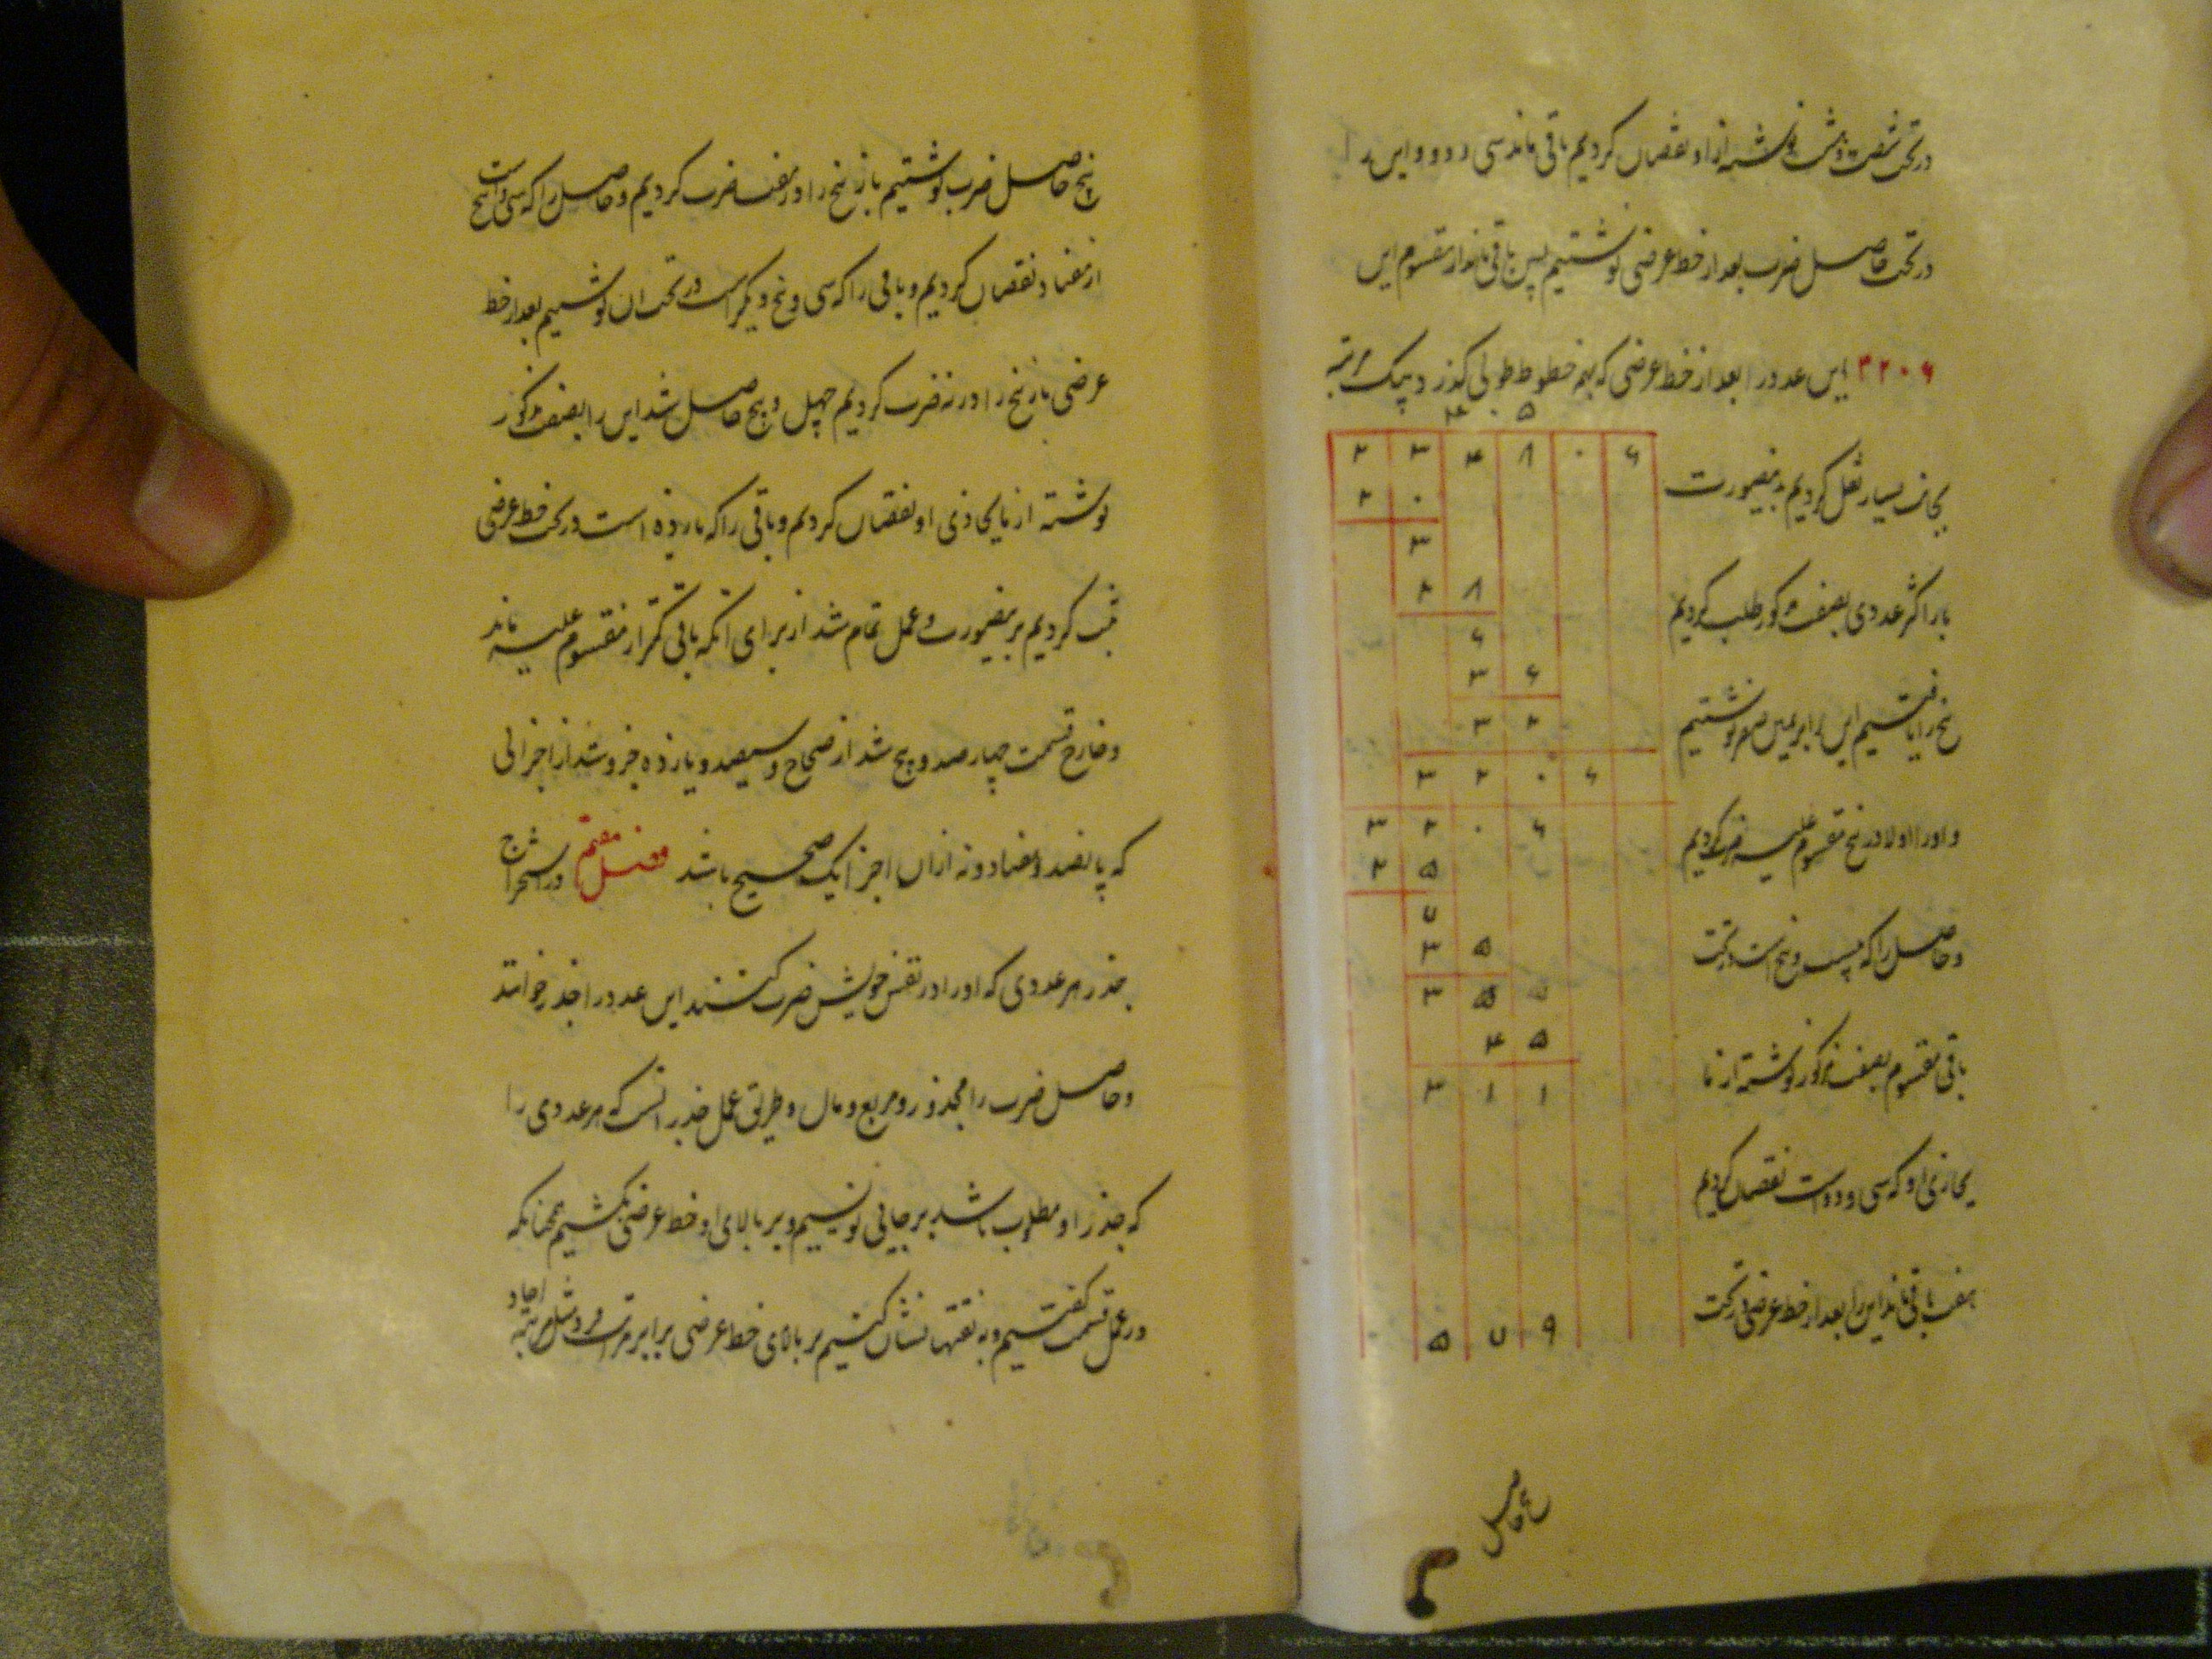 در تحت شصت و هشت نوشته ازو نقصان کردیم باقی ماند سی و دو و این را
در تحت حاصل ضرب بعد از خط عرضی نوشتیم پس باقی ماند از مقسوم این
۳۲۰۶ این عدد را بعد از خط عرضی که بهمه خطوط طولی گذرد بیک مرتبه
۴ ۰ ۵
۲ ۳ ۴ ۸ ۰ ۶
بجانب یسار نقل کردیم بدینصورت
۲ ۰
۳
۲ ۸
باز اکثر عددی بصفت مذکور طلب کردیم
۶
۳ ۶
۳ ۲
پنج را یافتیم این را برابر یمین صفر نوشتیم
۳ ۲ ۰ ۶
۳ ۲ ۰ ۶
و او را اولا در پنج مقسوم علیه ضرب کردیم
۲ ۵
۷
۳ ۵
و حاصل را که بیست و پنج است در تحت
۳ ۵
۴ ۵
باقی مقسوم بصفت مذکور نوشته از ما
۳ ۱ ۱
یحاذی او که سی و دو است نقصان کردیم
هفت باقی ماند این را بعد از خط عرضی در تحت
۵ ۷ ۹
پنج حاصل ضرب نوشتیم باز پنج را در هفت ضرب کردیم و حاصل را که سی و پنج است
از هفتاد نقصان کردیم و باقی را که سی و پنج دیگر است در تحت ان نوشتیم بعد از خط
عرضی باز پنج را در نه ضرب کردیم چهل و پنج حاصل شد این را بصفت مذکور
نوشته از مایحاذی او نقصان کردیم و باقی را که یازده است در تحت خط عرضی
ثبت کردیم بر ینصورت و عمل تمام شد از برای انکه باقی کمتر از مقسوم علیه ماند
و خارج قسمت چهار صد و پنج شد از صحاح و سیصد و یازده جزو شد از اجزائی
که پانصد و هفتاد و نه ازان اجزا یک صحیح باشد فصل هفتم در استخراج
جذر هر عددی که او را در نفس خویش ضرب کنند این عدد را جذر خوانند
و حاصل ضرب را مجذور و مربع و مال و طریق عمل جذر انست که هر عددی را
که جذر او مطلوب باشد بر جائی نویسیم و بر بالای او خط عرضی بکشیم همچنانکه
در عمل قسمت گفتیم و به نقتها نشان کنیم بر بالای خط عرضی برابر مراتب فرد مثل مرتبه احاد